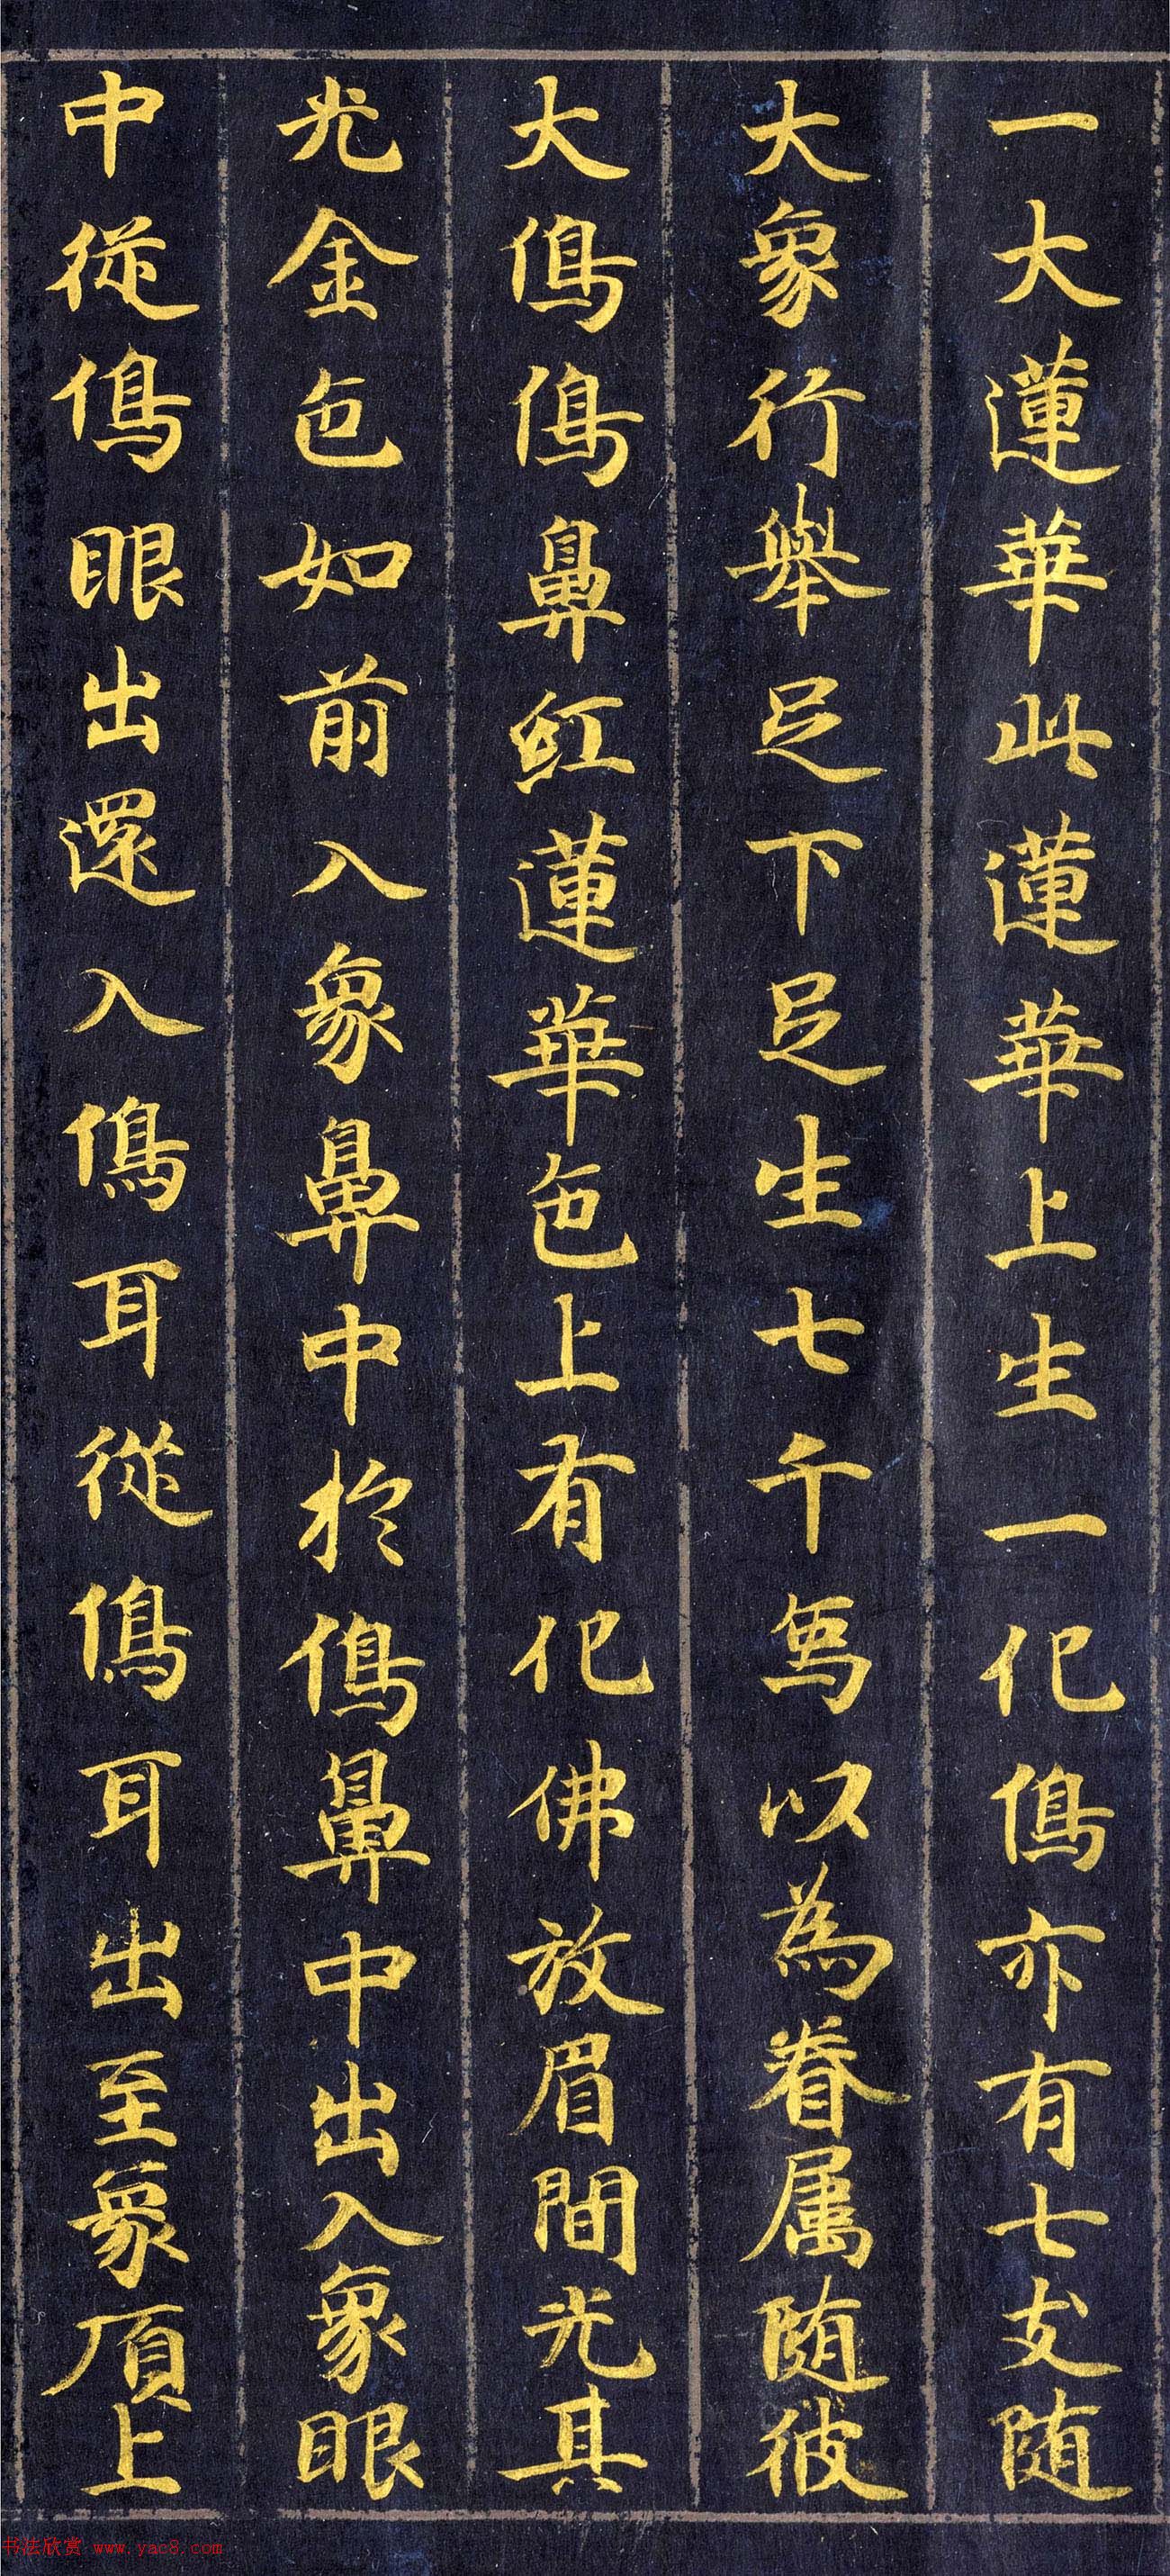 一大蓮華此蓮華上生一化像亦有七支随
大象行舉足下足生七千象以為眷属随彼
大像像鼻紅蓮華色上有化佛放眉間光其
光金色如前入象鼻中於像鼻中出入象眼
中從像眼出還入像耳從像耳出至象頂上
书法欣赏 www.yac8.com